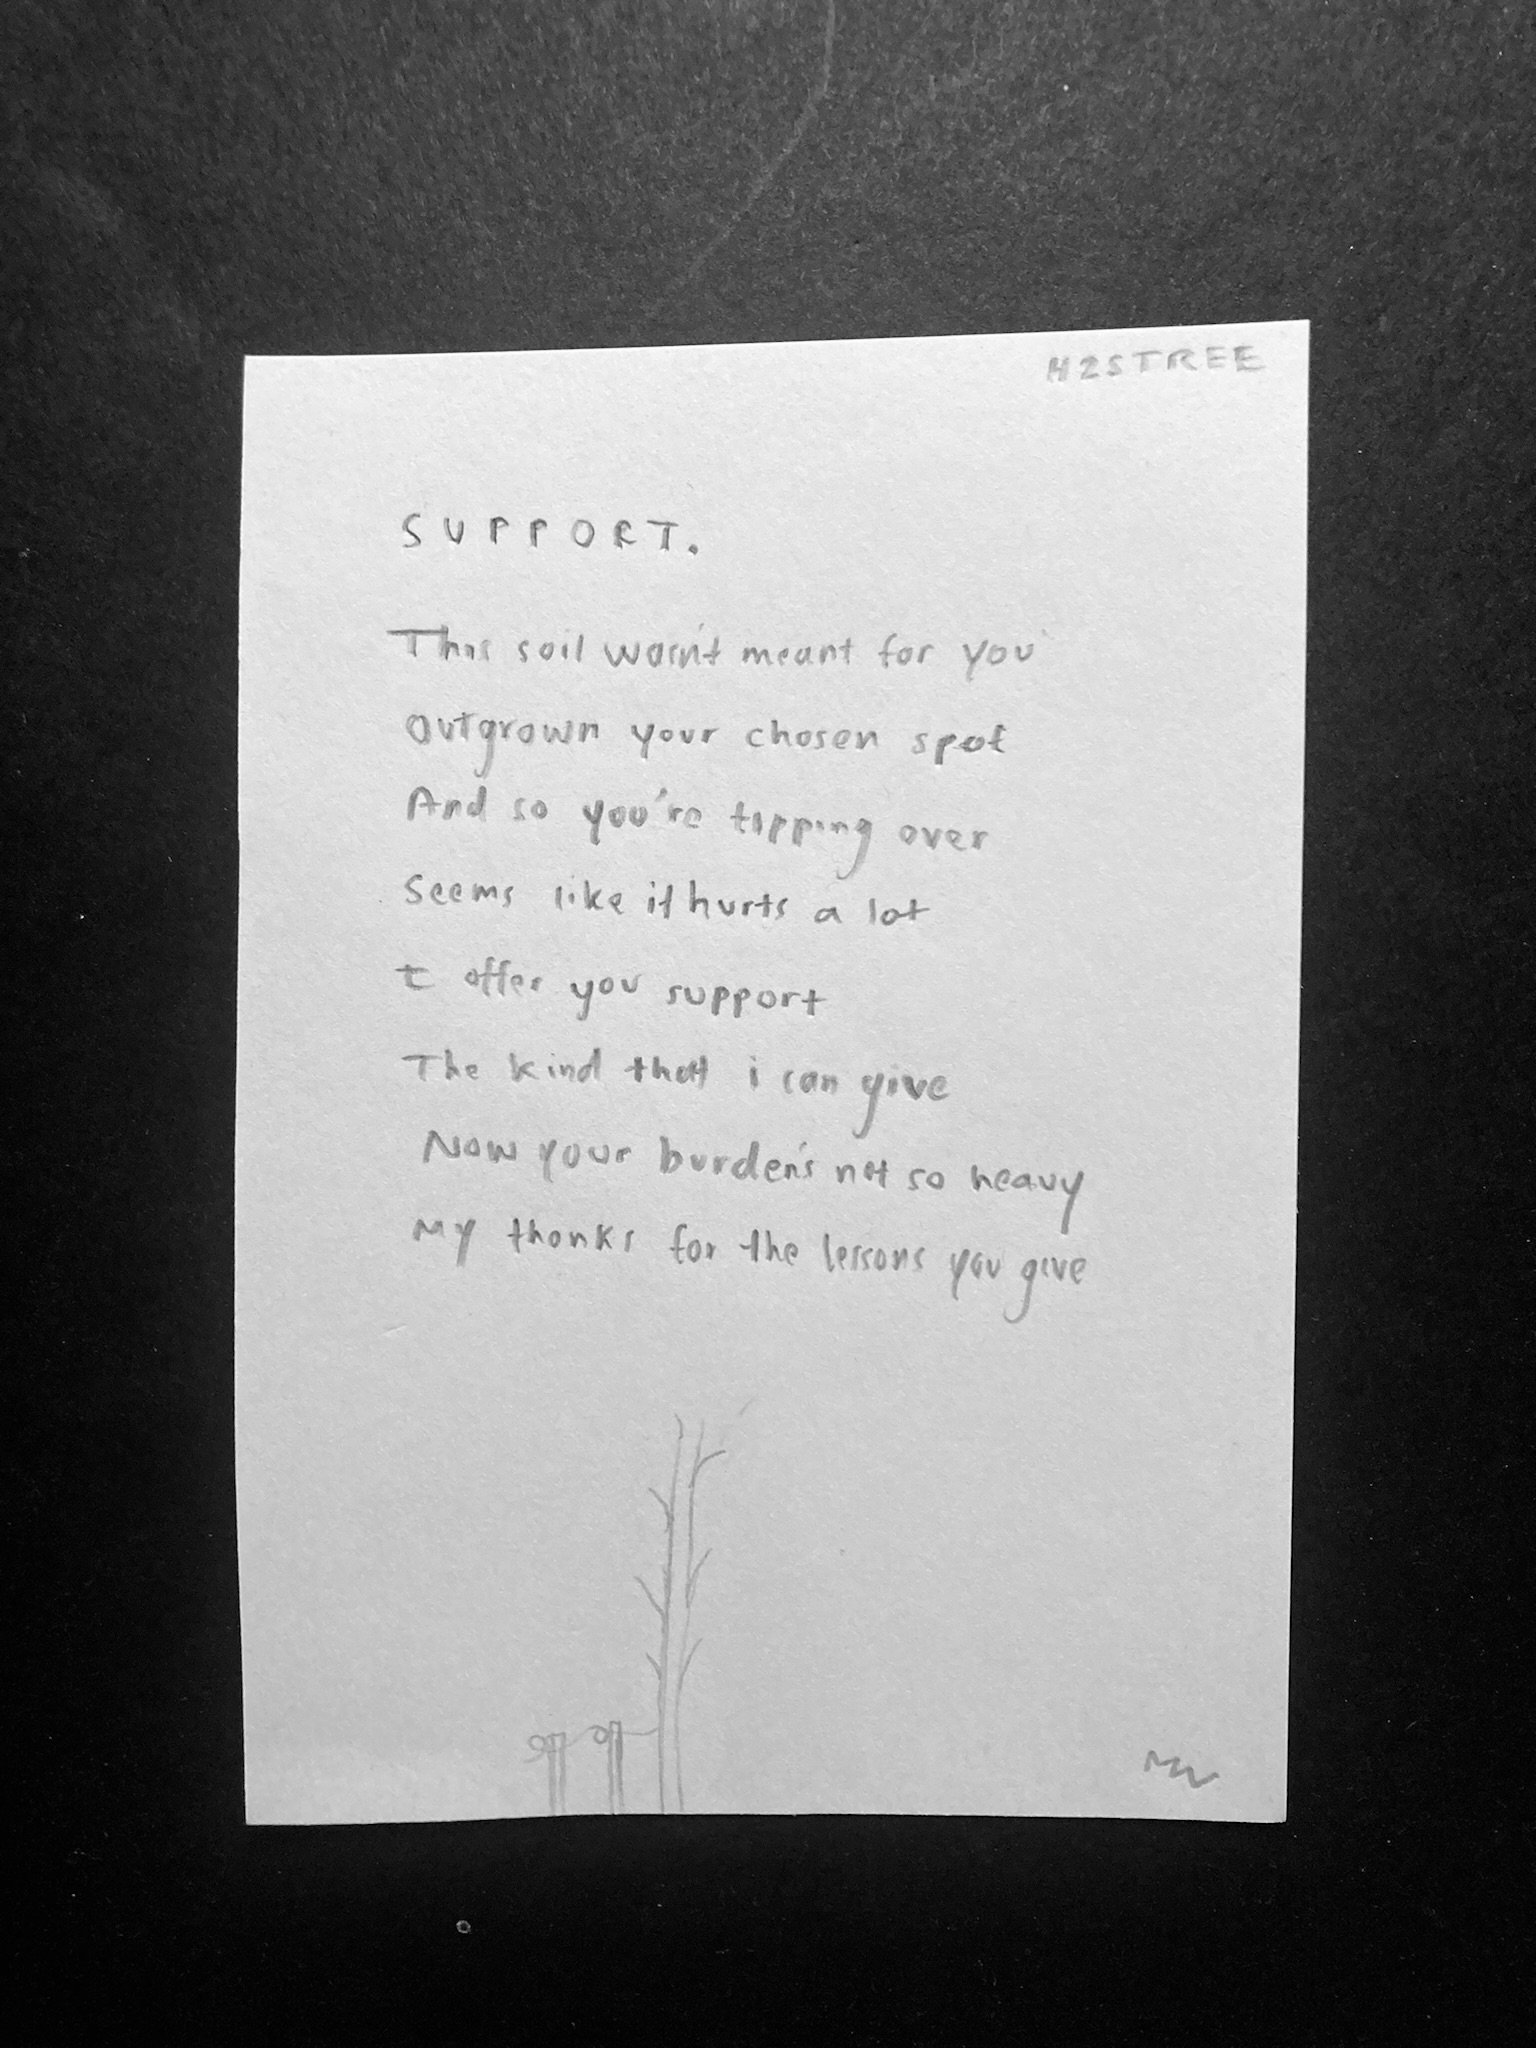 H2STREE
SUPPORT.
This soil wasn't meant for you
Outgrown your chosen spot
And so you're tipping over
Seems like it hurts a lot
I offer you support
The kind that i can give
Now your burden's not so heavy
My thanks for the lessons you give
MW